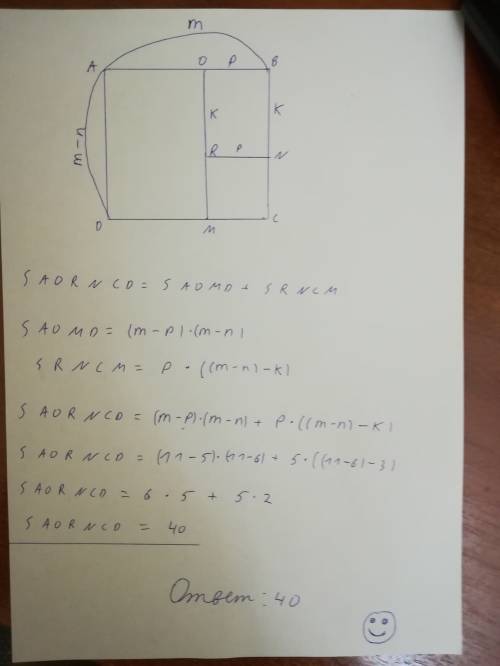 m
A O P B
K K
m-n
R P N
D M C
S AORNCD = S AOMD + S RNCM
S AOMD = (m-p)·(m-n)
S RNCM = p · ((m-n)-K)
S AORNCD = (m-p)·(m-n) + p·((m-n)-K)
S AORNCD = (11-5)·(11-6) + 5·((11-6)-3)
S AORNCD = 6·5 + 5·2
S AORNCD = 40
Ответ: 40